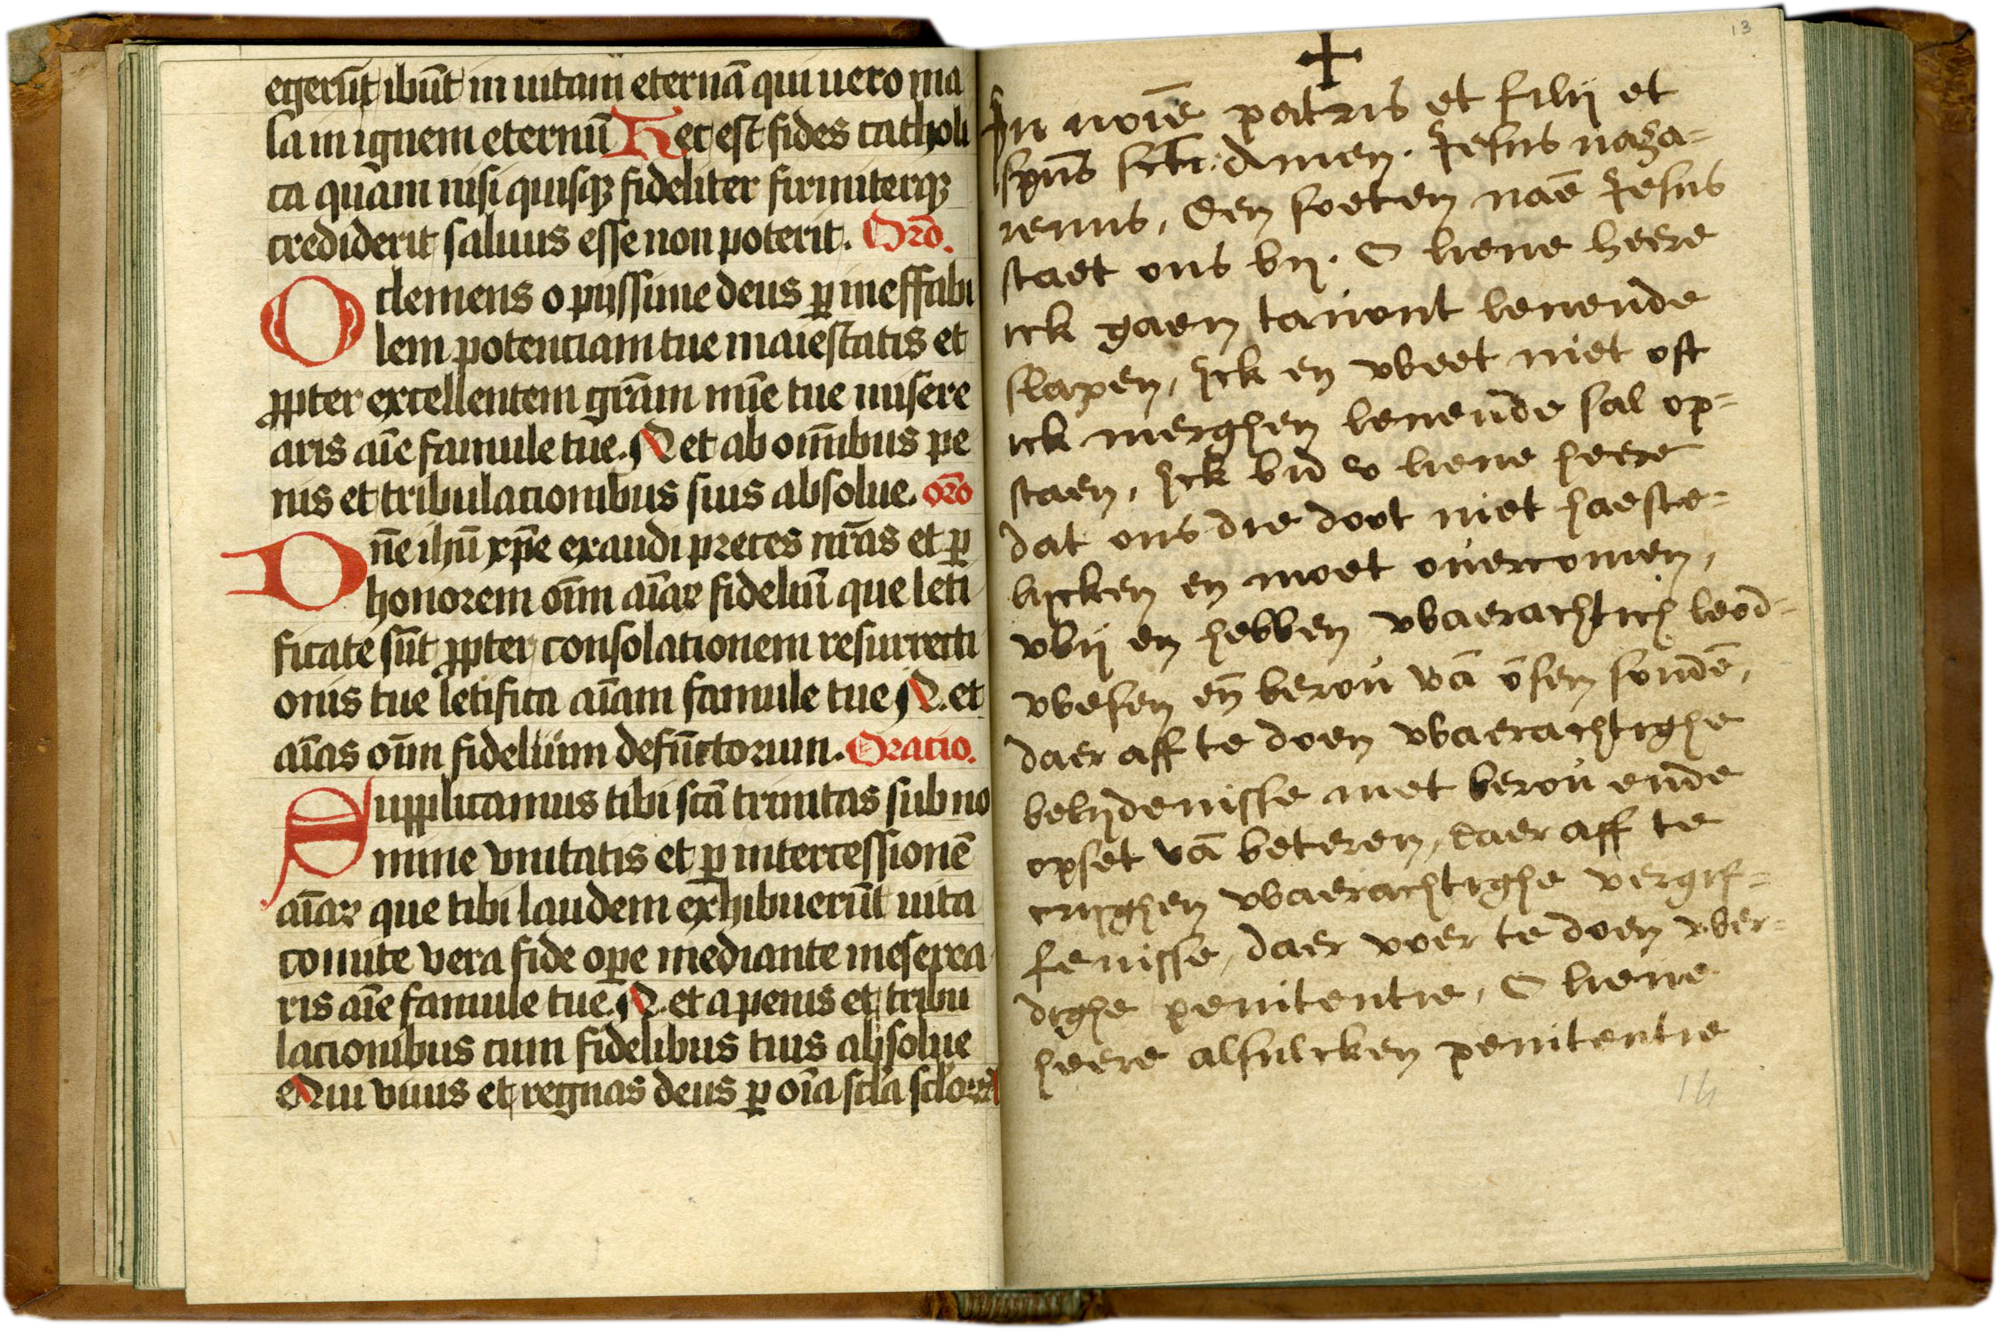 egerūt ibūt in uitam eternā qui uero ma
la in ignem eternū Hec est fides catholi
ca quam nisi quisqꝫ fideliter firmiterqꝫ
crediderit saluus esse non poterit. Orō.
O clemens o piissime deus ꝑ ineffabi
lem potenciam tue maiestatis et
ꝓpter excellentem grām mīe tue misere
aris aīe famule tue. N et ab oīnibus pe
nis et tribulacionibus suis absolue. orō
Dn̄e ihū xp̄e exaudi preces nrās et ꝑ
honorem oīm aīaꝝ fideliū que leti
ficate sūt ꝓpter consolationem resurrecti
onis tue letifica aīam famule tue N. et
aīas oīm fidelium defūctorum. Oracio.
Supplicamus tibi scā trinitas sub no
mine vnitatis et ꝑ intercessionē
aīaꝝ que tibi laudem exhibuerūt uita
comite vera fide ope mediante meserea
ris aīe famule tue. N. et a penis et tribu
lacionibus cum fidelibus tuis absolue
eN Qui viuis et regnas deus ꝑ oīa scla scloꝝ
13
In noīe patris et filij et
spūs scti: Amen. Jesus naza=
renus, Den soeten naē Jesus
staet ons bij. O lieue heere
ick gaen tauont leuende
slapen, Jck en weet niet oft
ick merghen leuende sal op=
staen, Jck bid v lieue heere
dat ons die doot niet haeste=
lijcken en moet ouercomen,
wij en hebben waerachtich leed=
wesen eñ berou vā onsen sondē,
daer aff te doen waerachtighe
belijdenisse met berou ende
opset vā beteren, daer aff te
crijghen waerachtighe vergif=
fenisse, daer voer te doen wer=
dighe penitentie, O lieue
heere alsulcken penitentie
14